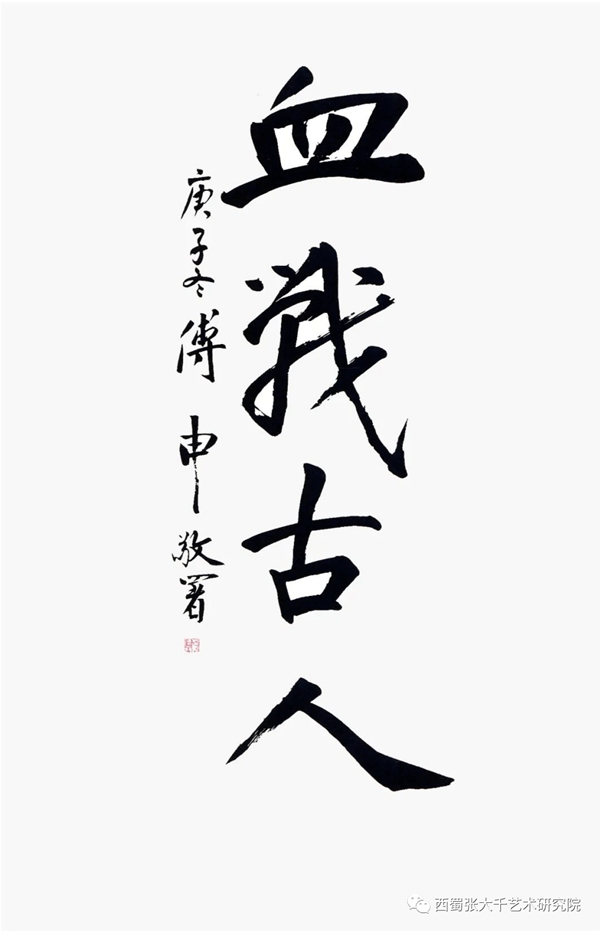 血戰古人
庚子冬傅申敬署
西蜀张大千艺术研究院